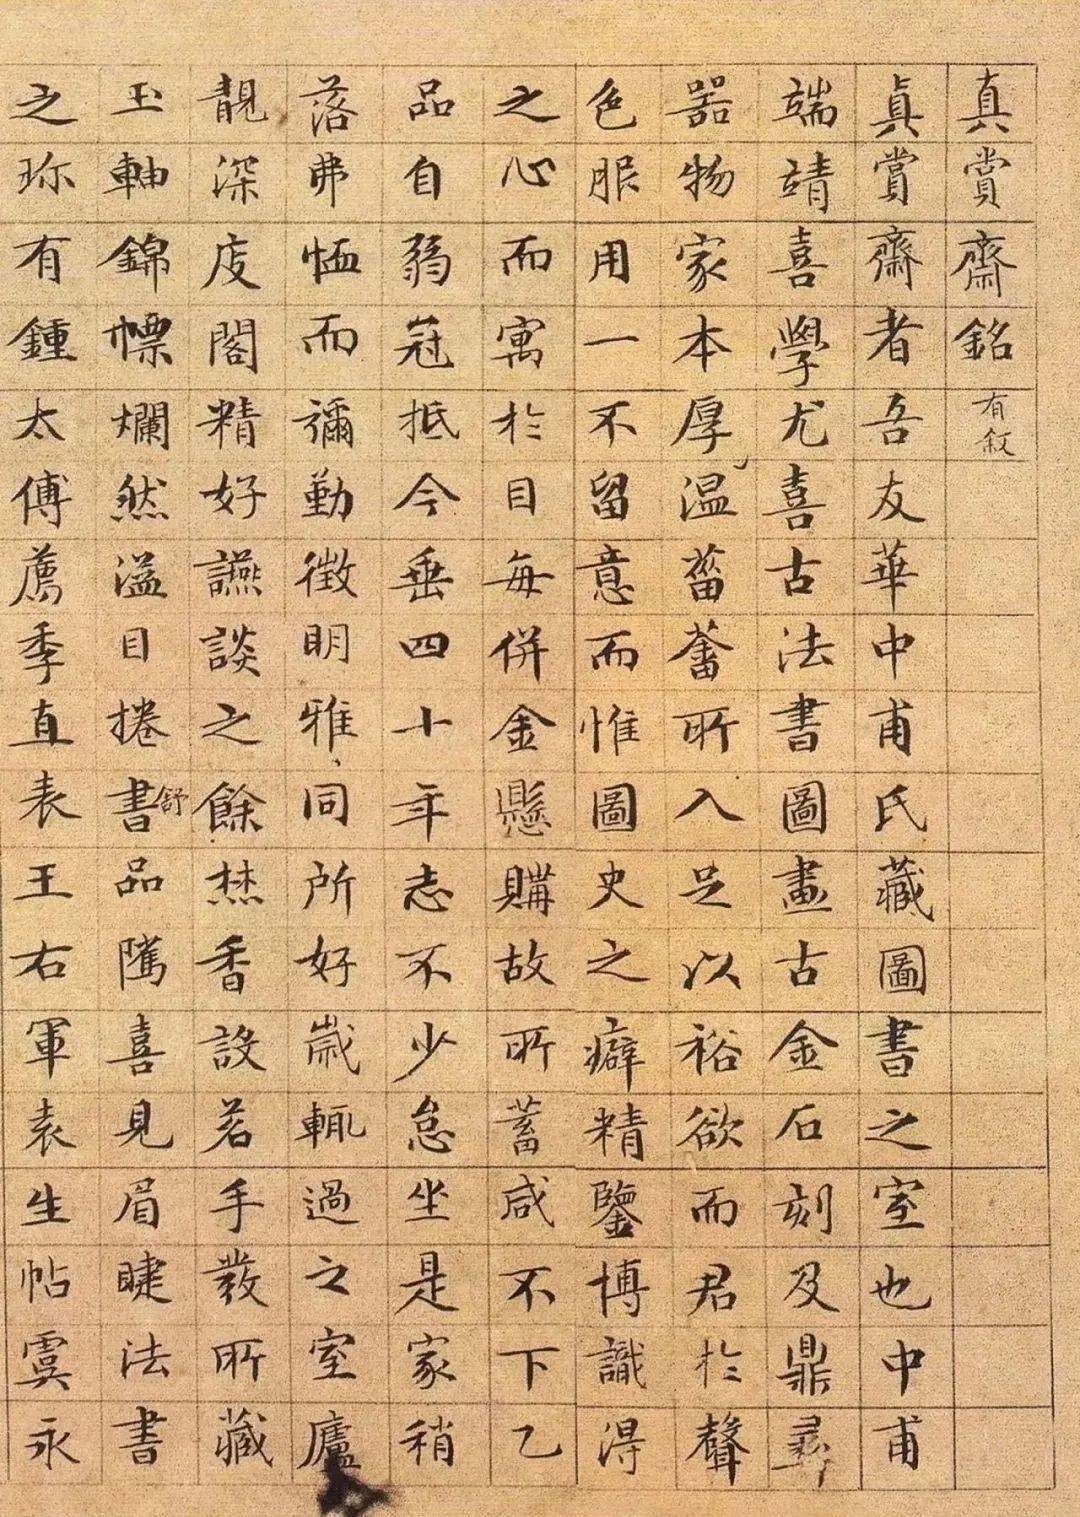 真賞齋銘有敘
真賞齋者吾友華中甫氏藏圖書之室也中甫
端靖喜學尤喜古法書圖畫古金石刻及鼎彝
器物家本厚温菑畬所入足以裕欲而君於聲
色服用一不留意而惟圖史之癖精鑒博識得
之心而寓於目每併金懸購故所蓄咸不下乙
品自弱冠抵今垂四十年志不少怠坐是家稍
落弗恤而彌勤徵明雅同所好嵗輒過之室廬
靚深庋閣精好讌談之餘焚香設茗手發所藏
玉軸錦幖爛然溢目捲舒書品隲喜見眉睫法書
之珎有鍾太傅薦季直表王右軍袁生帖虞永